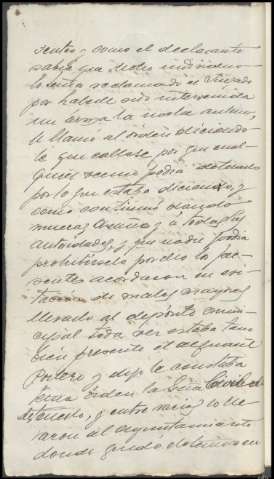 sentes y como el declarante
sabia que dicho individuo
lo habia reclamado el Juzgado
por haberle sido intervenida
un arma la noche anterior,
le llamó al orden diciendo
le que callase por que cual
quier vecino podia detenerlo
por lo que estaba diciendo, y
como continuó dando
mueras España y a todas sus
autoridades, y que nadie podia
prohibirselo por ello los pre
sentes acordaron en evi
tacion de males mayores
llevarlo al depósito muni
cipal toda vez estaba tam
bien presente el aguacil
Portero y dijo le constaba
tenia orden la Gria Civil de
detenerlo, y entre varios lo lle
varon al ayuntamiento
donde quedó detenido en